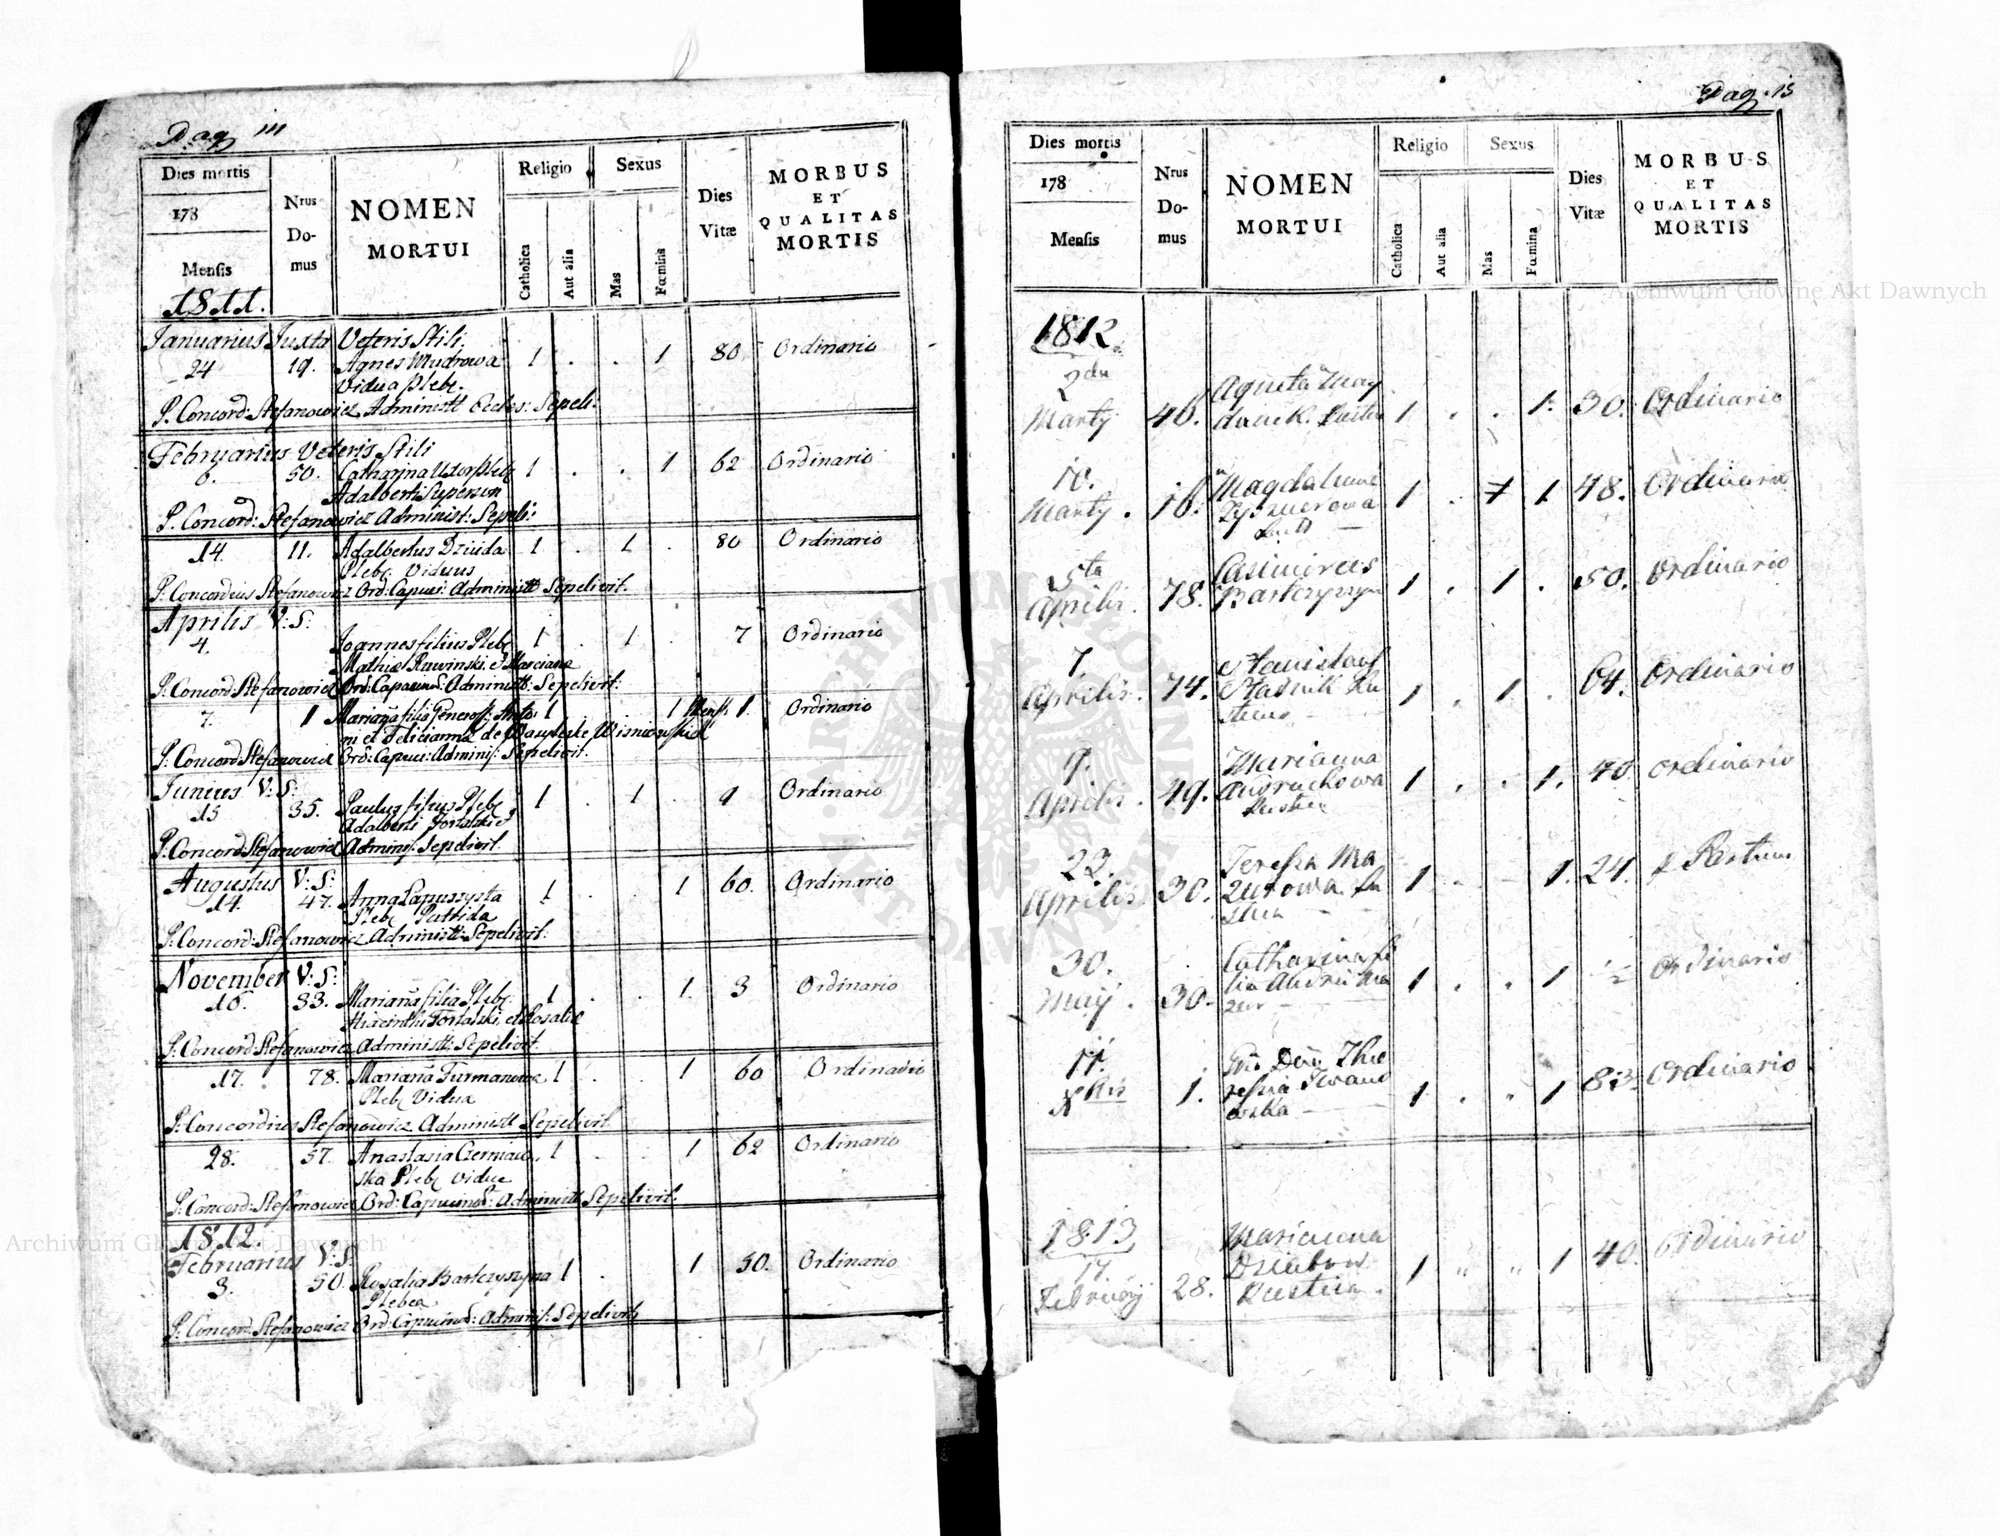 Pag 14
Dies mortis
178
Mensis
Nrus
Do-
mus
NOMEN
MORTUI
Religio
Catholica
Aut alia
Sexus
Mas
Fœmina
Dies
Vitæ
MORBUS
ET
QUALITAS
MORTIS
1811.
Januarius Juxta Veteris Stili.
24 19. Agnes Mudrowa 1 . . 1 80 Ordinario
Vidua Pleb.
P. Concord: Stefanowicz Administr Eccles: Sepeli.
Februarius Veteris Stili
6. 50. Catharina Uxor Pleb 1 . . 1 62 Ordinario
Adalberti Superson
P. Concord: Stefanowicz Administ: Sepeli:
14. 11. Adalbertus Dziuda 1 . 1 . 80 Ordinario
Pleb. Viduus
P. Concordius Stefanowicz Ord: Capuci: Administr Sepelivit.
Aprilis V: S:
4. Joannes filius Pleb 1 . 1 . 7 Ordinario
Mathiæ Rawinski et Marciana
P. Concord Stefanowicz Ord: Capucin: Administr: Sepelivit:
7. 1 Mariana filia Generos: Anto: 1 1 Mens. 1. Ordinario
ni et Feliciannæ de Wisniowskich
P. Concord Stefanowicz Ord: Capuci: Adminis: Sepelivit.
Junius V: S:
15 35. Paulus filius Pleb 1 . 1 . 9 Ordinario
Adalberti Tortalski et
P. Concord Stefanowicz Adminis: Sepelivit.
Augustus V: S:
14. 47. Anna Lapuszysta 1 . . 1 60. Ordinario
Pleb
P. Concord: Stefanowicz Administr: Sepelivit:
November V: S:
16. 33. Mariana filia Pleb 1 . . 1. 3 Ordinario
Hiacinthi Tortalski, et Rosalie
P. Concord: Stefanowicz Administr: Sepelivit.
17. 78. Mariana Furmanowa 1 . . 1 60 Ordinario
Pleb Vidua
P. Concordius Stefanowicz Administr Sepelivit
28. 57. Anastasia Czerniaw 1 . . 1 62 Ordinario
ska Pleb vidue
P. Concord: Stefanowicz Ord: Capucinor: Administr Sepelivit.
1812.
Februarius V: S:
3. 50. Rosalia Bartczyszyna 1 . 1 50. Ordinario
Plebea
P. Concord. Stefanowicz Ord: Capucinor: Adminis: Sepelivit
Pag. 15
Dies mortis
178
Mensis
Nrus
Do-
mus
NOMEN
MORTUI
Religio
Catholica
Aut alia
Sexus
Mas
Fœmina
Dies
Vitæ
MORBUS
ET
QUALITAS
MORTIS
1812
2da Agneta May
Martÿ 46. danek. 1 . . 1. 30. Ordinario
10. Magdalena
Martÿ . 16. 1 . 1 48. Ordinario
5ta Casimirus
Aprilis. 78. Bartczyszyn 1 . 1 . 50. Ordinario
7. Stanislaus
Aprilis. 74. Stadnik Ru 1 . 1 . 64. Ordinario
sticus
9. Marianna
Aprilis. 49. Andruchowa 1 . . 1. 40. Ordinario
Rustica
22. Teresia Ma
Aprilis. 30. zurowa Ru 1 . 1. 24. Partum
stica
30. Catharina fi
Maÿ. 30. lia Andrei Ma 1 . . 1 ½ Ordinario
zur
17.
Xbris 1. 1 . . 1 83. Ordinario
1813 Marianna
17. Dziabow
Februarÿ 28. Rustica. 1 " " 1 40. Ordinario
Archiwum Główne Akt Dawnych
Archiwum Główne Akt Dawnych
ARCHIWUM GŁÓWNE AKT DAWNYCH